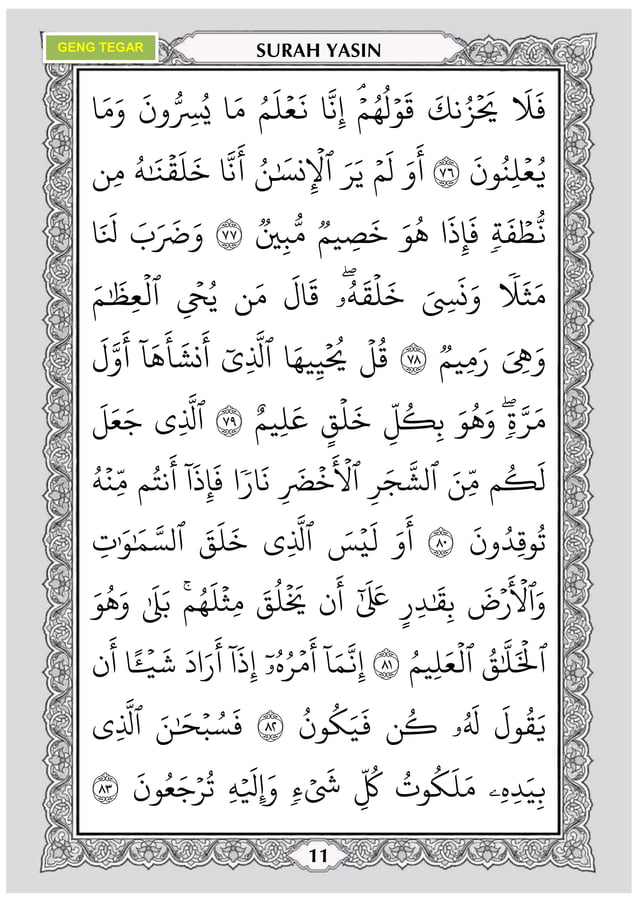 GENG TEGAR
SURAH YASIN
فَلَا يَحْزُنكَ قَوْلُهُمْ ۘ إِنَّا نَعْلَمُ مَا يُسِرُّونَ وَمَا
يُعْلِنُونَ ٧٦ أَوَلَمْ يَرَ ٱلْإِنسَـٰنُ أَنَّا خَلَقْنَـٰهُ مِن
نُّطْفَةٍ فَإِذَا هُوَ خَصِيمٌ مُّبِينٌ ٧٧ وَضَرَبَ لَنَا
مَثَلًا وَنَسِىَ خَلْقَهُۥ ۖ قَالَ مَن يُحْىِ ٱلْعِظَـٰمَ
وَهِىَ رَمِيمٌ ٧٨ قُلْ يُحْيِيهَا ٱلَّذِىٓ أَنشَأَهَآ أَوَّلَ
مَرَّةٍ ۖ وَهُوَ بِكُلِّ خَلْقٍ عَلِيمٌ ٧٩ ٱلَّذِى جَعَلَ
لَكُم مِّنَ ٱلشَّجَرِ ٱلْأَخْضَرِ نَارًا فَإِذَآ أَنتُم مِّنْهُ
تُوقِدُونَ ٨٠ أَوَلَيْسَ ٱلَّذِى خَلَقَ ٱلسَّمَـٰوَٰتِ
وَٱلْأَرْضَ بِقَـٰدِرٍ عَلَىٰٓ أَن يَخْلُقَ مِثْلَهُم ۚ بَلَىٰ وَهُوَ
ٱلْخَلَّـٰقُ ٱلْعَلِيمُ ٨١ إِنَّمَآ أَمْرُهُۥٓ إِذَآ أَرَادَ شَيْـًٔا أَن
يَقُولَ لَهُۥ كُن فَيَكُونُ ٨٢ فَسُبْحَـٰنَ ٱلَّذِى
بِيَدِهِۦ مَلَكُوتُ كُلِّ شَىْءٍ وَإِلَيْهِ تُرْجَعُونَ ٨٣
11